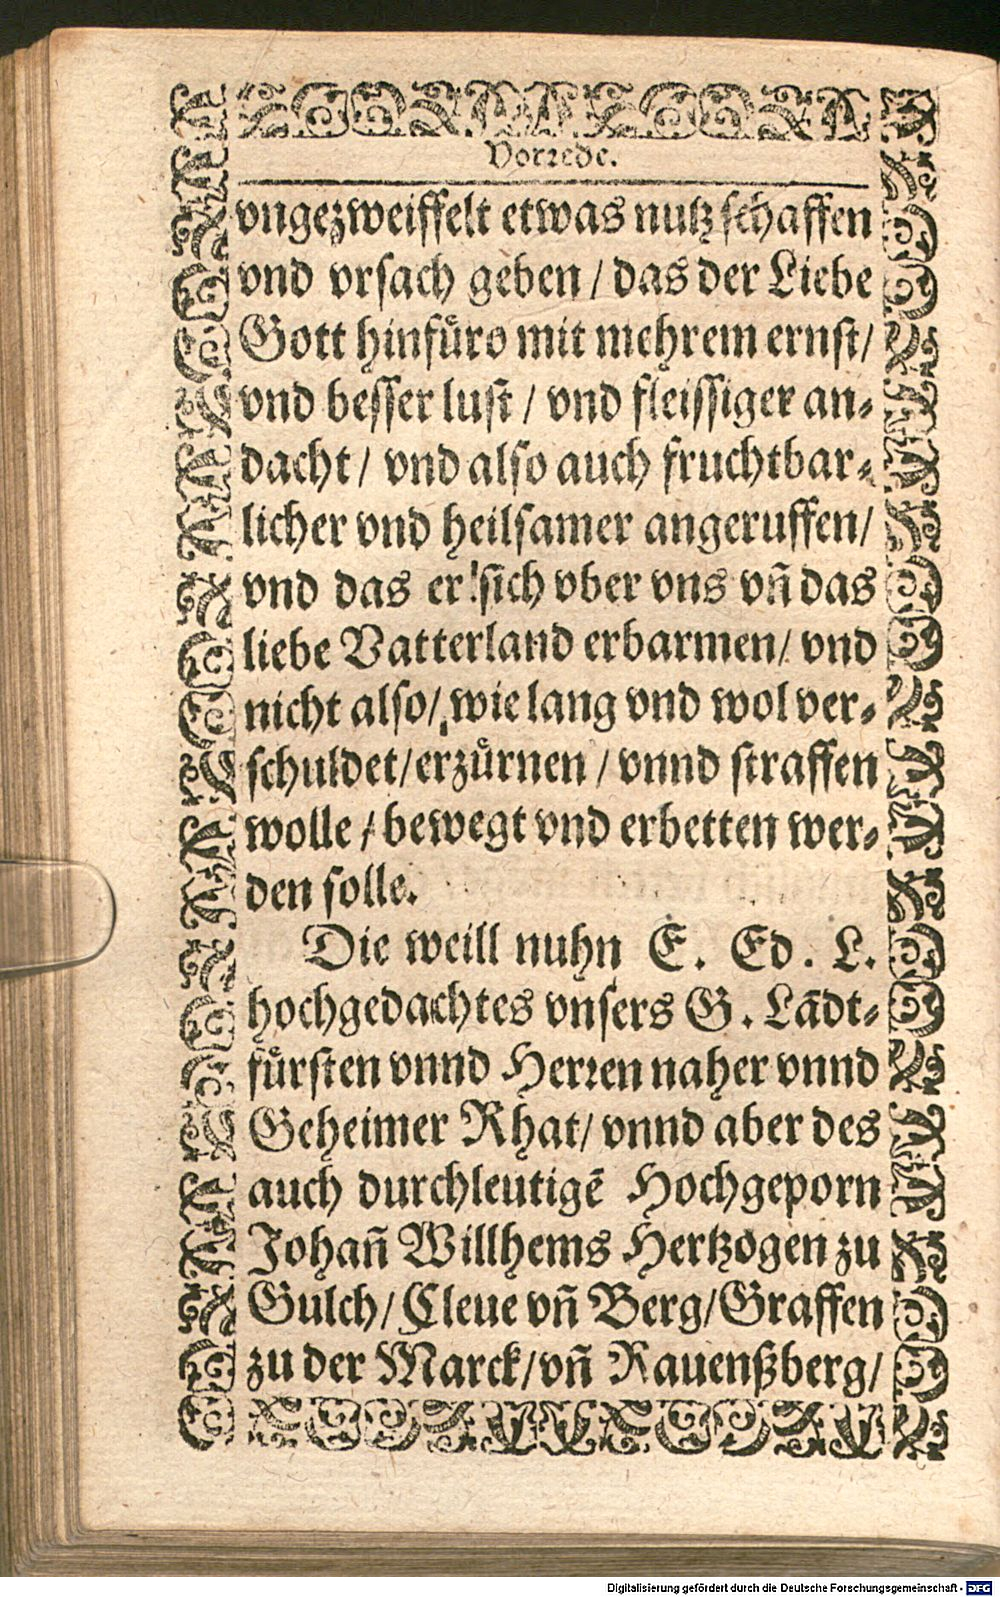 Vorrede.
vngezweiffelt etwas nutz schaffen
vnd vrsach geben / das der Liebe
Gott hinfuͤro mit mehrem ernst/
vnd besser lust / vnd fleissiger an⸗
dacht / vnd also auch fruchtbar⸗
licher vnd heilsamer angeruffen/
vnd das er sich vber vns vñ das
liebe Vatterland erbarmen/ vnd
nicht also/ wie lang vnd wol ver⸗
schuldet/erzuͤrnen / vnnd straffen
wolle / bewegt vnd erbetten wer⸗
den solle.
Die weill nuhn E. Ed. L.
hochgedachtes vnsers G. Lãdt⸗
fuͤrsten vnnd Herren naher vnnd
Geheimer Rhat/ vnnd aber des
auch durchleutigẽ Hochgeporn
Johañ Willhems Hertzogen zu
Gulch/ Cleue vñ Berg/Graffen
zu der Marck/vñ Rauenßberg/
Digitalisierung gefördert durch die Deutsche Forschungsgemeinschaft - DFG